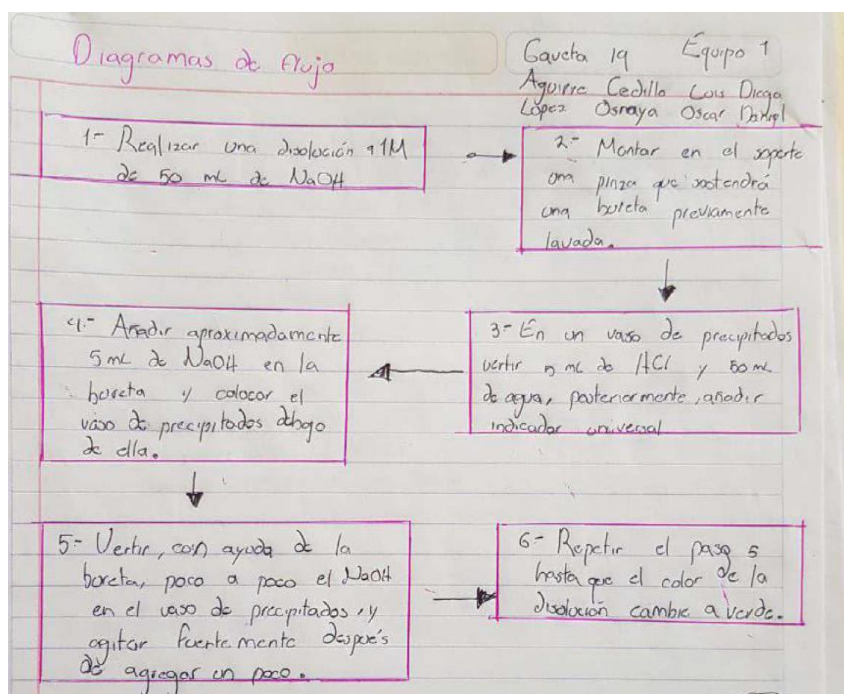 Diagramas de flujo
Gaveta 19 Equipo 1
Aguirre Cedillo Luis Diego
López Osnaya Oscar Daniel
1.- Realizar una disolución a 1M
de 50 mL de NaOH
2.- Montar en el soporte
una pinza que sostendrá
una bureta previamente
lavada.
3.- En un vaso de precipitados
vertir 5 mL de HCl y 50 mL
de agua, posteriormente, añadir
indicador universal
4.- Añadir aproximadamente
5 mL de NaOH en la
bureta y colocar el
vaso de precipitados debajo
de ella.
5.- Vertir, con ayuda de la
bureta, poco a poco el NaOH
en el vaso de precipitados, y
agitar fuertemente después
de agregar un poco.
6.- Repetir el paso 5
hasta que el color de la
disolución cambie a verde.